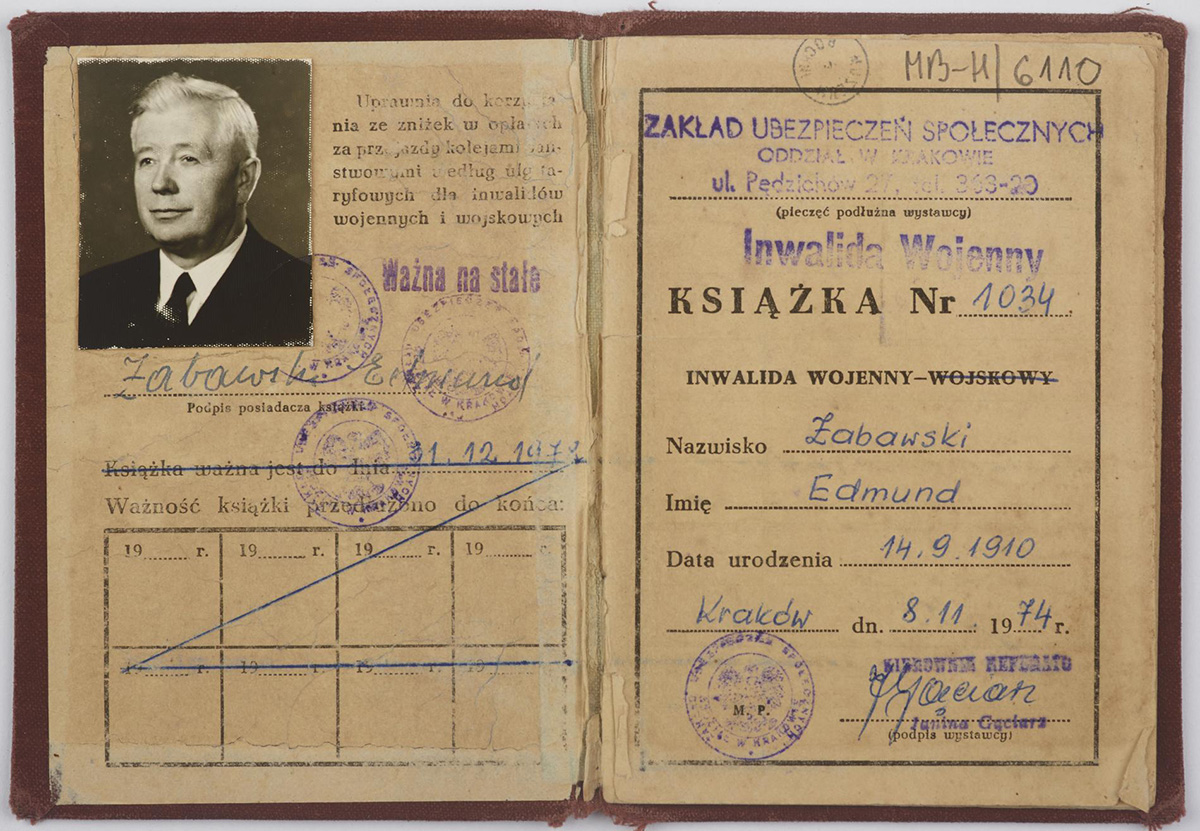 Uprawnia do korzysta-
nia ze zniżek w opłatach
za przejazdy kolejami pań-
stwowymi według ulg ta-
ryfowych dla inwalidów
wojennych i wojskowych
Ważna na stałe
Żabawski Edmund
Podpis posiadacza książki
Książka ważna jest do dnia 31.12.197
Ważność książki przedłużono do końca:
19 r. 19 r. 19 r. 19 r.
19 r. 19 r. 19 r. 19 r.
MB-H/6110
ZAKŁAD UBEZPIECZEŃ SPOŁECZNYCH
ODDZIAŁ W KRAKOWIE
ul. Pędzichów 27, tel. 363-20
(pieczęć podłużna wystawcy)
Inwalida Wojenny
KSIĄŻKA Nr 1034
INWALIDA WOJENNY-WOJSKOWY
Nazwisko Żabawski
Imię Edmund
Data urodzenia 14.9.1910
Kraków dn. 8.11. 1974 r.
KIEROWNIK REFERATU
M. P.
Janina Gąciarz
(podpis wystawcy)